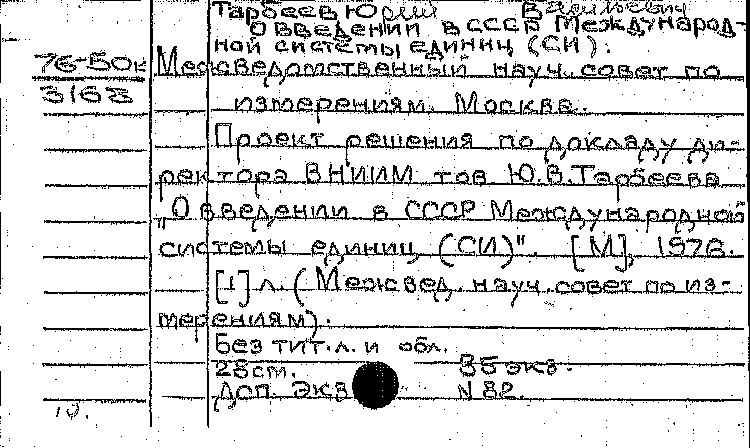 Тарбеев Юрий Васильевич
О введении в СССР Международ-
ной системы единиц (СИ).
76-50к
3168
Межведомственный науч. совет по
измерениям. Москва.
Проект решения по докладу ди-
ректора ВНИИМ тов Ю.В.Тарбеева
"О введении в СССР Международной
системы единиц (СИ)". [М], 1976.
[1] л. (Межвед. науч. совет по из-
мерениям).
Без тит.л. и обл.
28см. 85 экз.
Доп. экз N 82.